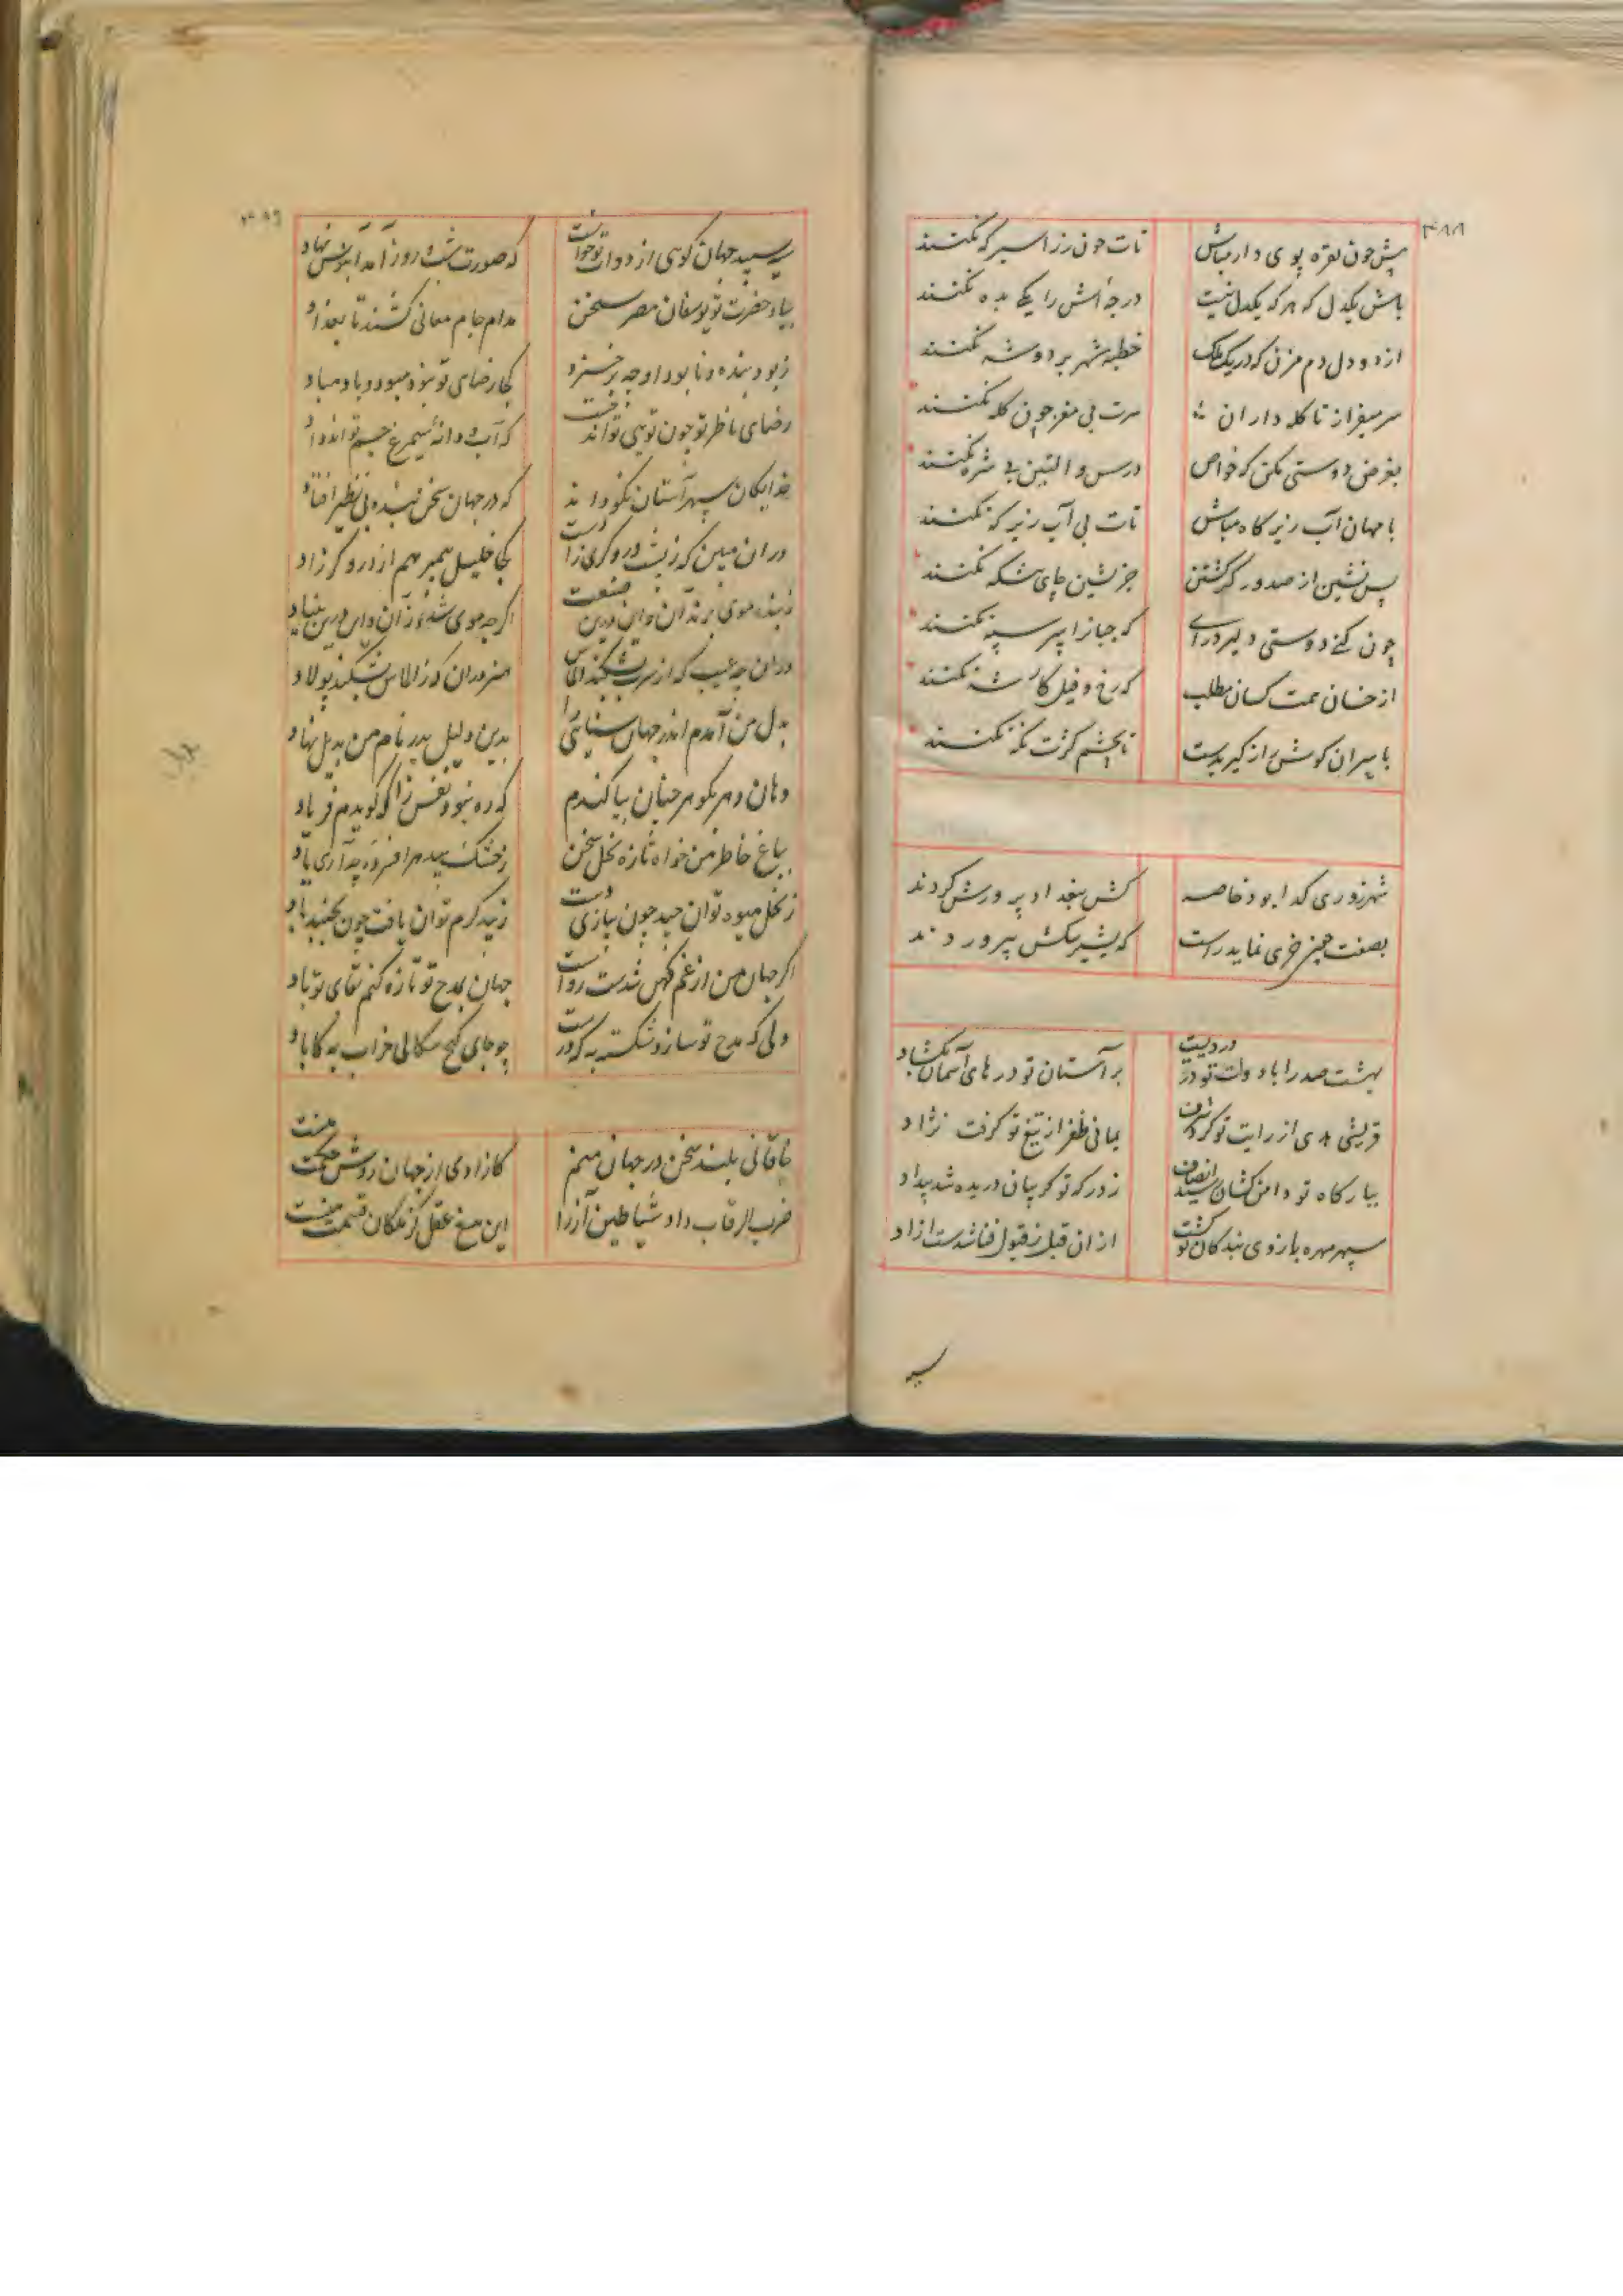 ۴۸۸
پیش چون نقره پوی دار مباش تات چون زر اسیر که نکنند
باش یکدل که هر که یکدل نیست درجه‌اش را یکی بده نکنند
از دو دل دم مزن که در یک ملک خطبه شهر بر دو شه نکنند
سر میفراز تا کله داران سرت بی مغز چون کله نکنند
بغرض دوستی مکن که خواص درس والتین بی شره نکنند
با مهان آب زیر کاه مباش تات بی آب زیر که نکنند
پس نشین از صدور کز گشتن جز پشین جای پیشگه نکنند
چون کنی دوستی دلیر درآی که جبانرا سپر سپه نکنند
از خسان همت کسان مطلب که رخ و فیل کار شه نکنند
با سران گوش از گیر بدست تا بچشم کژت نگه نکنند
شهرزوری گدا بود خاصه کش ببغداد پرورش کردند
بصفت چیز خری نماید راست که بشیر سگش پرورودند
بهشت صدرا با دولت تو در دردیست بر آستان تو درهای آسمان بگشاد
قریشی هدی از رایت تو گردان شرف یمانی ظفر از تیغ تو گرفت نژاد
ببارگاه تو دامن کشان رسید انصاف ز درگه تو گریبان دریده شد بیداد
سپهر مهره بازوی بندگان تو گشت از آن قبل ز قبول فنا شدست آزاد
۴۸۹
سپید جهان گوئی از دوات تو خواست که صورت شب و روز آمد آبنوس نهاد
بیاد حضرت تو یوسفان مصر سخن مدام جام معانی کشند تا بغداد
ز بود بنده و نابود او چه برخیزد کجا رضای تو نبود مبود و باد مباد
رضای خاطر تو چون توئی تواند که آب و دانه سیمرغ جم تواند داد
خدایگان سپهر آستان نکو داند که در جهان سخن بنده بی نظیر افتاد
در آن مبین که ز پشت دروگری زادست کجا خلیل پیمبر هم از دروگر زاد
دران چه عیب که از سرب بشکند الماس هنر در آن که ز الماس بشکند پولاد
بدل من آمدم اندر جهان سنائی را بدین دلیل پدر نام من بدیل نهاد
دهان دهر بگوهر چنان بیاکندم که ره نبود نفس را که گویدم فریاد
بباغ خاطر من خواه تازه نخل سخن ز خشک بید هر افسرده چه آری یاد
ز نخل میوه توان چید چون بیازی دست ز بید کرم توان یافت چون بجنبد باد
اگر جهان من از غم کهن شدست رواست جهان بمدح تو تازه کنم بقای تو باد
دلی که مدح تو سازد شکسته به که درست چو جای گنج سگالی خراب به که آباد
خاقانی بلند سخن در جهان منم کازادی از جهان روش حکمت منست
ضرب الرقاب داد شیاطین آز را این تیغ عقل کز ملکان قیمت منست